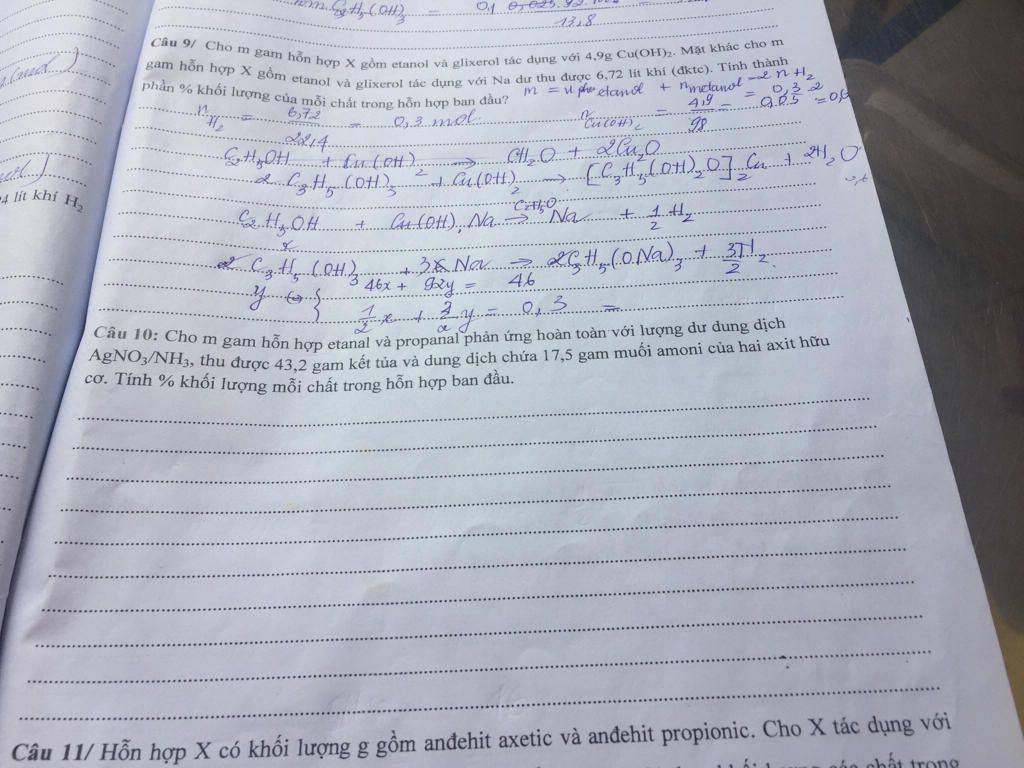 0,1 0,025.92.100
n.m.C3H5(OH)3 =
13,8
Câu 9/ Cho m gam hỗn hợp X gồm etanol và glixerol tác dụng với 4,9g Cu(OH)2. Mặt khác cho m
gam hỗn hợp X gồm etanol và glixerol tác dụng với Na dư thu được 6,72 lít khí (đktc). Tính thành
phần % khối lượng của mỗi chất trong hỗn hợp ban đầu?
nH2 = 6,72/22,4 = 0,3 mol
nCu(OH)2 = 4,9/98 = 0,05
C2H5OH + Cu(OH)2 → CH2O + 2Cu2O
2 C3H5(OH)3 + Cu(OH)2 → [C3H5(OH)2O]2Cu + 2H2O
C2H5OH + Cu(OH), Na → C2H5O Na + 1/2 H2
2 C3H5(OH)3 + 3 Na → 2C3H5(ONa)3 + 3H/2 2
46x + 92y = 46
1/2 x + 3/2 y = 0,3 =
4 lít khí H2
Câu 10: Cho m gam hỗn hợp etanal và propanal phản ứng hoàn toàn với lượng dư dung dịch
AgNO3/NH3, thu được 43,2 gam kết tủa và dung dịch chứa 17,5 gam muối amoni của hai axit hữu
cơ. Tính % khối lượng mỗi chất trong hỗn hợp ban đầu.
Câu 11/ Hỗn hợp X có khối lượng g gồm anđehit axetic và anđehit propionic. Cho X tác dụng với